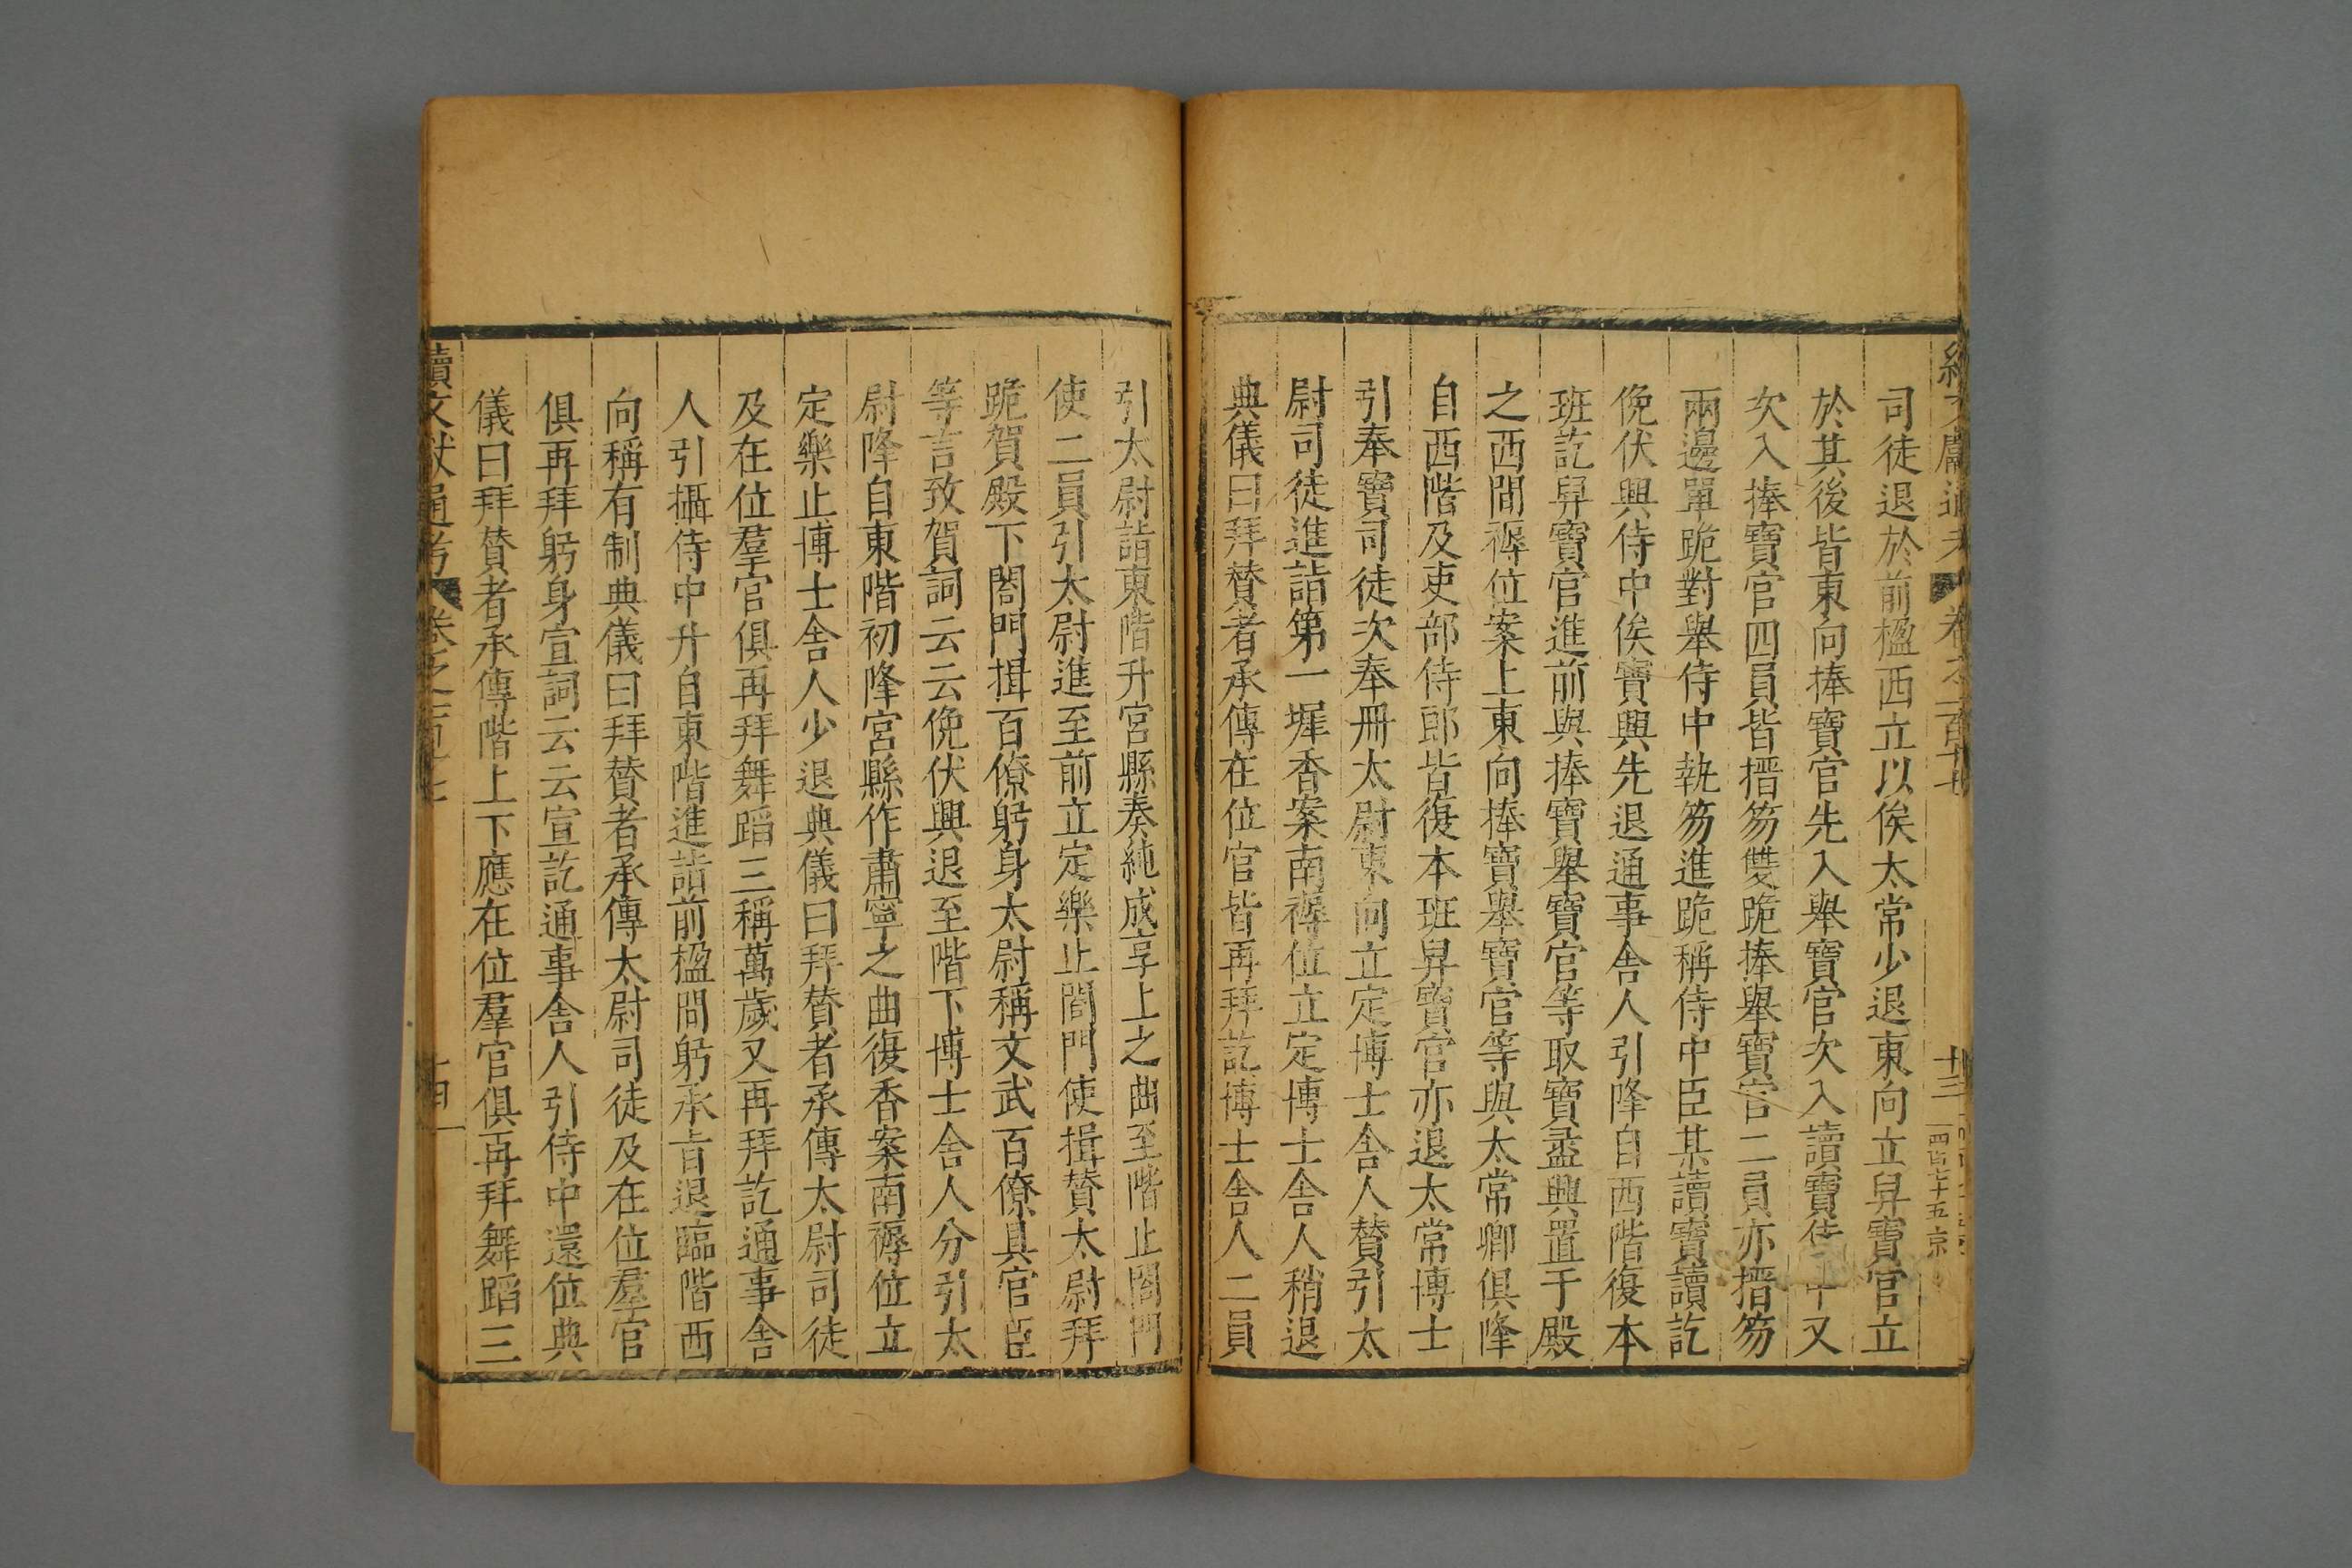 司徒退於前楹西立以俟太常少退東向立舁寶官立
於其後皆東向捧寶官先入舉寶官次入讀寶侍中又
次入捧寶官四員皆搢笏雙跪捧舉寶官二員亦搢笏
兩邊單跪對舉侍中執笏進跪稱侍中臣某讀寶讀訖
俛伏興侍中俟寶興先退通事舍人引降自西階復本
班訖舁寶官進前與捧寶舉寶官等取寶盝興置于殿
之西間褥位案上東向捧寶舉寶官等與太常卿俱降
自西階及吏部侍郎皆復本班舁寶官亦退太常博士
引奉寶司徒次奉冊太尉東向立定博士舍人贊引太
尉司徒進詣第一墀香案南褥位立定博士舍人稍退
典儀曰拜贊者承傳在位官皆再拜訖博士舍人二員
引太尉詣東階升宮縣奏純成享上之曲至階止閤門
使二員引太尉進至前立定樂止閤門使揖贊太尉拜
跪賀殿下閤門揖百僚躬身太尉稱文武百僚具官臣
等言致賀詞云云俛伏興退至階下博士舍人分引太
尉降自東階初降宮縣作肅寧之曲復香案南褥位立
定樂止博士舍人少退典儀曰拜贊者承傳太尉司徒
及在位羣官俱再拜舞蹈三稱萬歲又再拜訖通事舍
人引攝侍中升自東階進詣前楹間躬承旨退臨階西
向稱有制典儀曰拜贊者承傳太尉司徒及在位羣官
俱再拜躬身宣詞云云宣訖通事舍人引侍中還位典
儀曰拜贊者承傳階上下應在位羣官俱再拜舞蹈三
續文獻通考